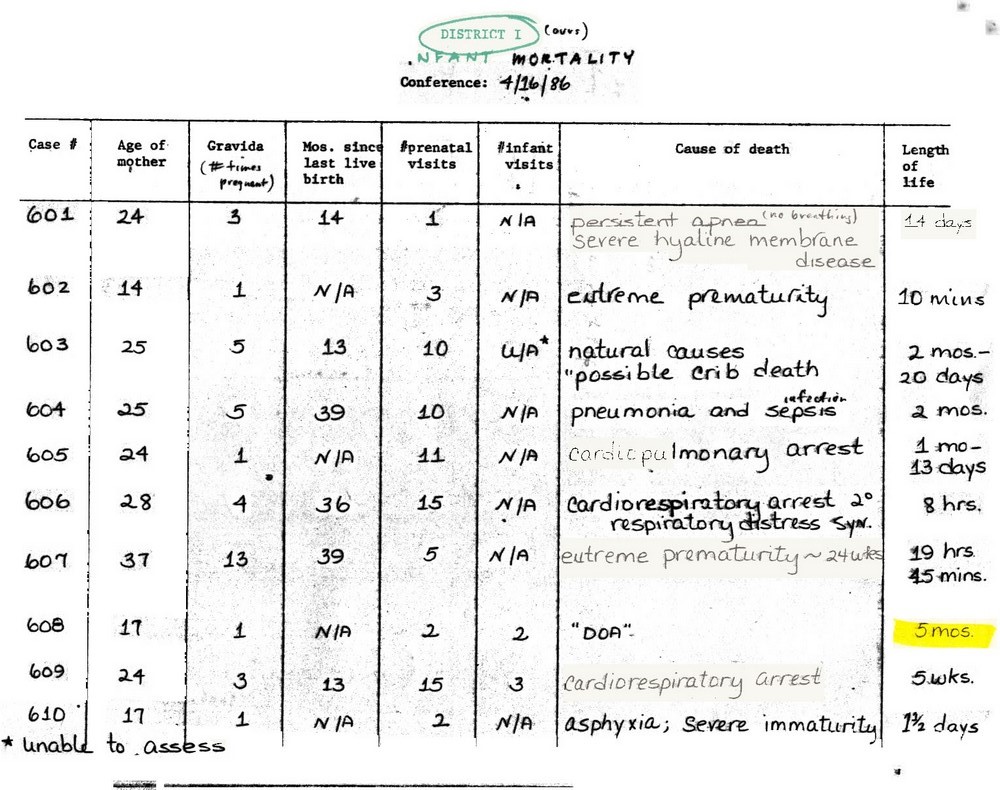 DISTRICT I (ours)
NFANT MORTALITY
Conference: 4/16/86
Case # Age of mother Gravida (# times pregnent) Mos. since last live birth #prenatal visits #infant visits Cause of death Length of life
601 24 3 14 1 N/A persistent apnea (no breathing) 14 days
severe hyaline membrane
disease
602 14 1 N/A 3 N/A extreme prematurity 10 mins
603 25 5 13 10 U/A* natural causes 2 mos.-
"possible crib death 20 days
604 25 5 39 10 N/A pneumonia and sepsis infection 2 mos.
605 24 1 N/A 11 N/A cardiopulmonary arrest 1 mo-
13 days
606 28 4 36 15 N/A cardiorespiratory arrest 2° 8 hrs.
respiratory distress syn.
607 37 13 39 5 N/A extreme prematurity ~ 24wks 19 hrs.
45 mins.
608 17 1 N/A 2 2 "DOA" 5 mos.
609 24 3 13 15 3 cardiorespiratory arrest 5 wks.
610 17 1 N/A 2 N/A asphyxia; severe immaturity 1½ days
* unable to assess